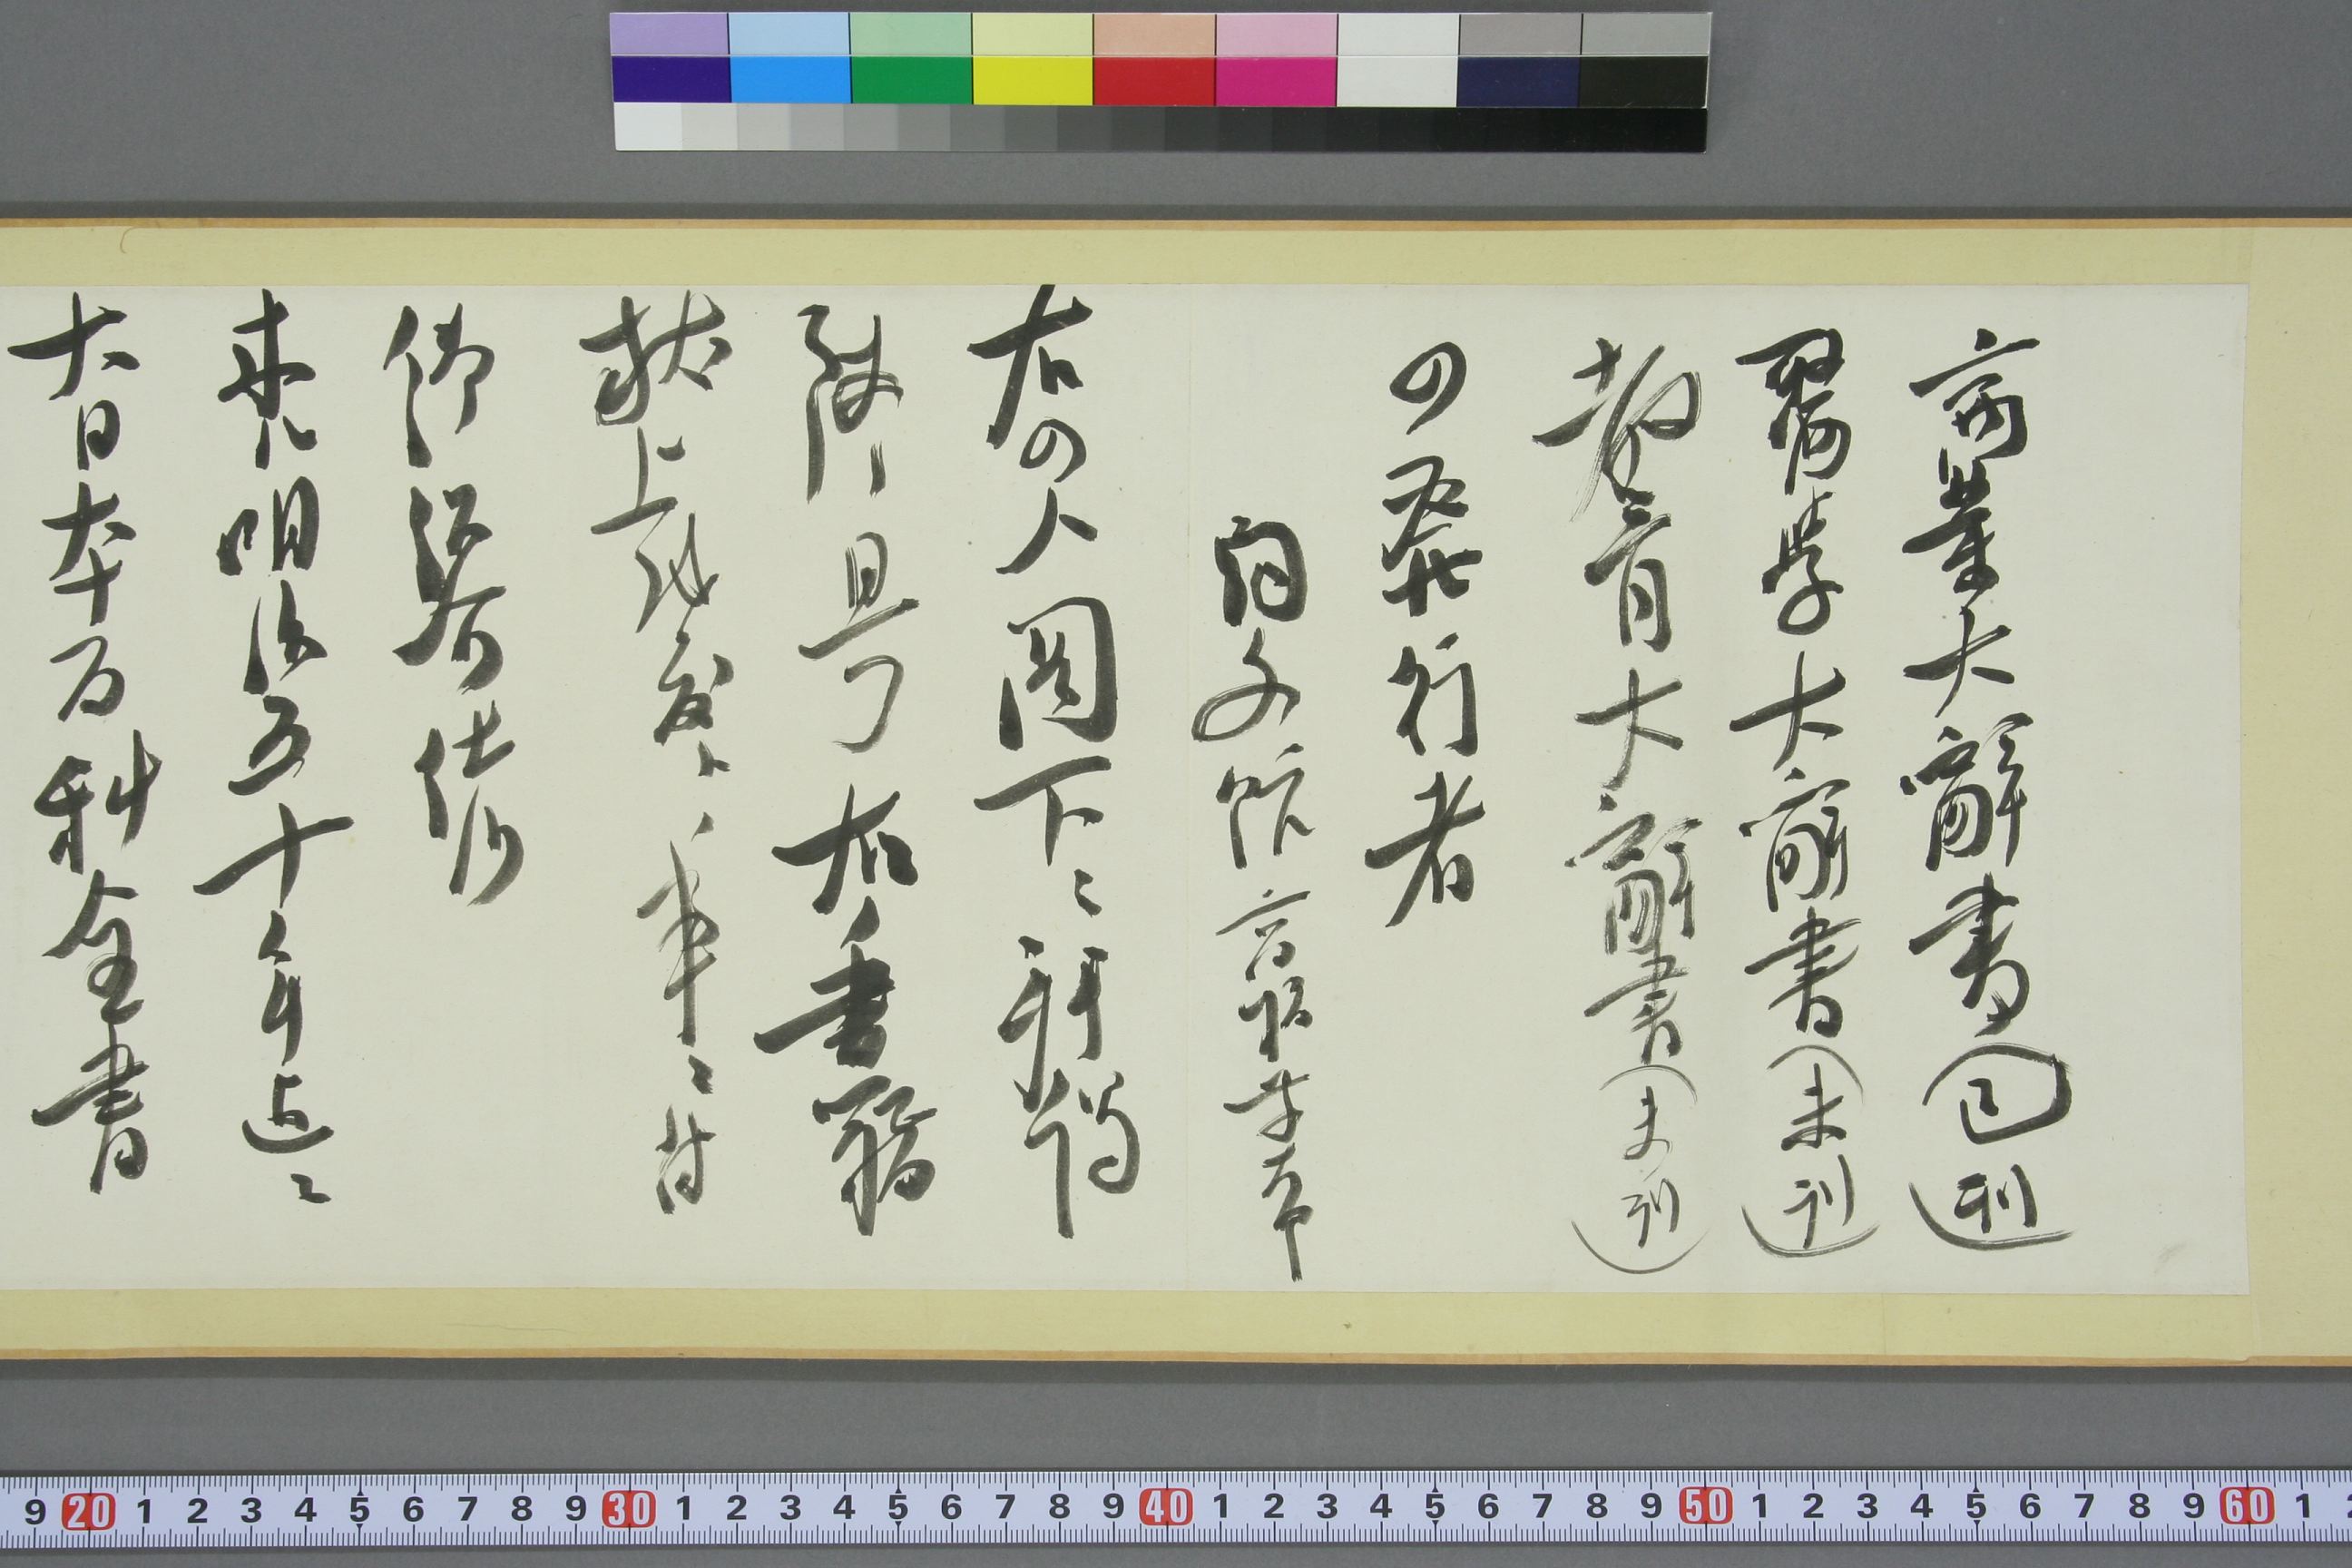 商業大辭書(已刊)
醫學大辭書(未刊)
教育大辭書(未刊)
の發行者
同文館
右の人閣下ニ拝謁
且つ右書籍
献上致度 事ニ付
御紹介仕候
来ル明治五十年迠ニ
大日本百科全書
9 20 1 2 3 4 5 6 7 8 9 30 1 2 3 4 5 6 7 8 9 40 1 2 3 4 5 6 7 8 9 50 1 2 3 4 5 6 7 8 9 60 1